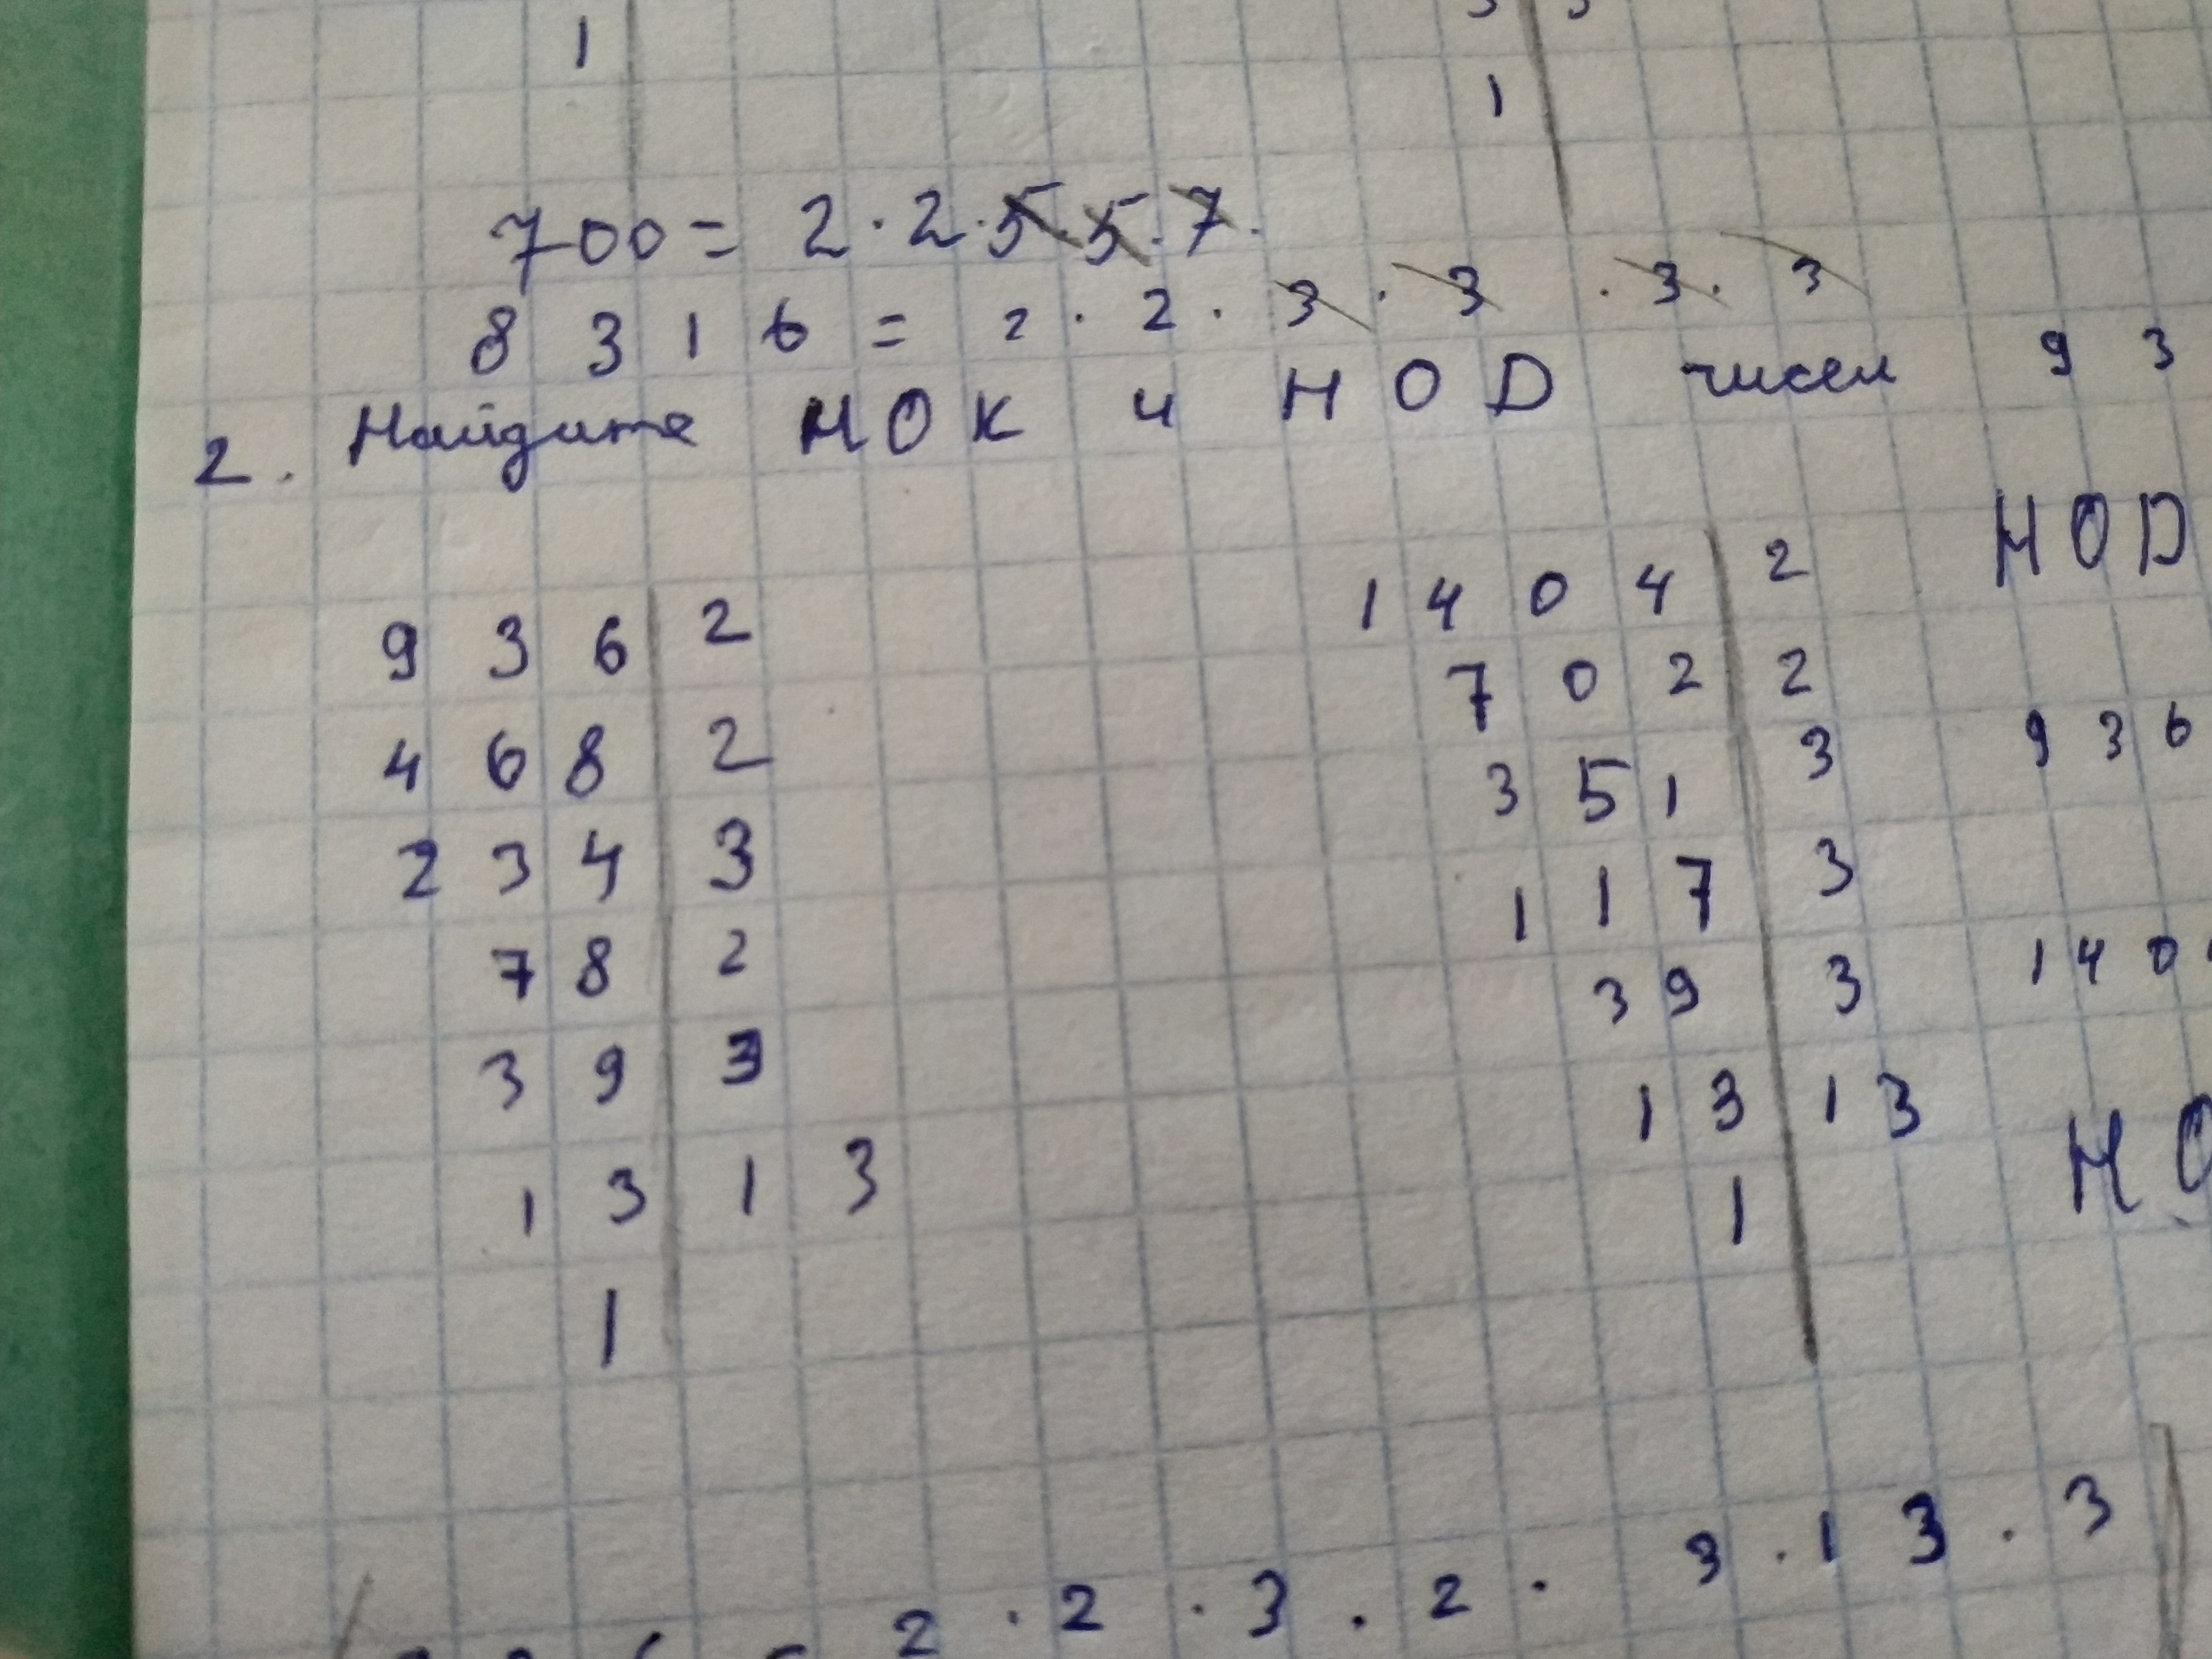 1
1
700 = 2 · 2 · 5 · 5 · 7 ·
8316 = 2 · 2 · 3 · 3 · 3 · 3
2. Найдите НОК и НОD чисел 93
НОD
936 | 2
468 | 2
234 | 3
78 | 2
39 | 3
13 | 13
1
1404 | 2
702 | 2
351 | 3
117 | 3
39 | 3
13 | 13
1
936
140
НО
2 · 2 · 3 · 2 · 3 · 13 · 3